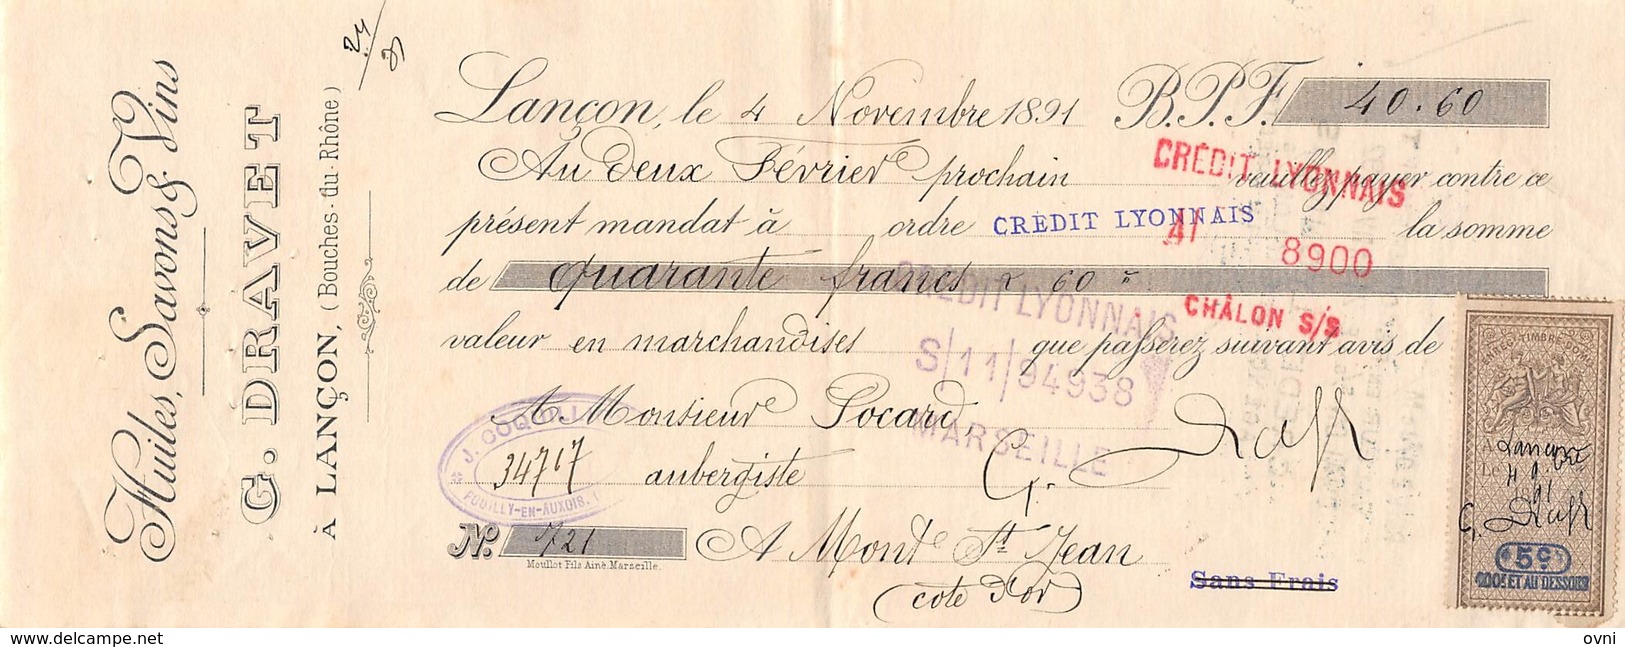 Huiles, Savons & Vins
G. DRAVET
À LANÇON, (Bouches-du-Rhône)
Lançon, le 4 Novembre 1891 B.P.F. 40.60
Au deux Février prochain veuillez payer contre ce
présent mandat à ordre CRÉDIT LYONNAIS la somme
de quarante francs 60
valeur en marchandises que passerez suivant avis de
A Monsieur Socard
aubergiste
No. 721 A Mont St Jean
(cote d'or)
Moullot Fils Ainé. Marseille.
Sans Frais
CRÉDIT LYONNAIS
AI 8900
CHÂLON S/S
CRÉDIT LYONNAIS
S/11/94938
MARSEILLE
J. COQUILL
34717
POUILLY-EN-AUXOIS
À Lançon
Le 4 9 91
5c
200f ET AU DESSOUS
ovni